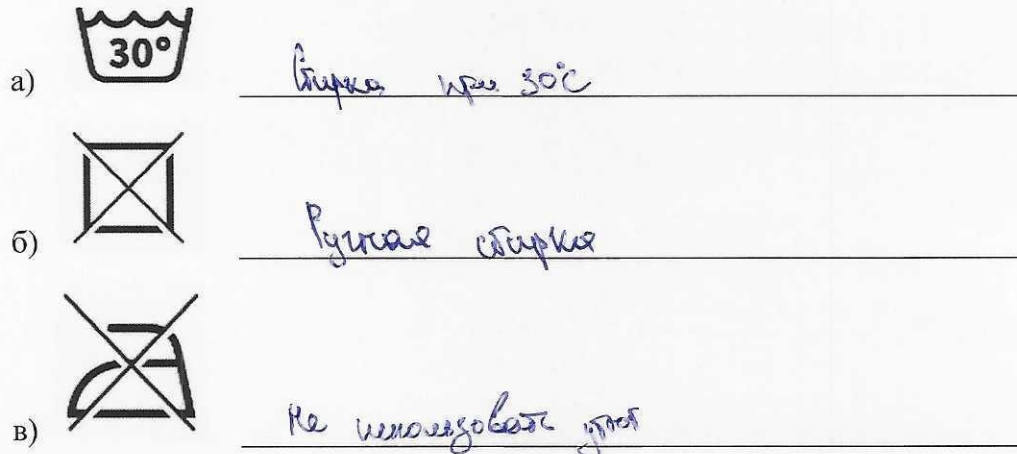 30°
а) Стирка при 30°С
б) Ручная стирка
в) Не использовать утюг